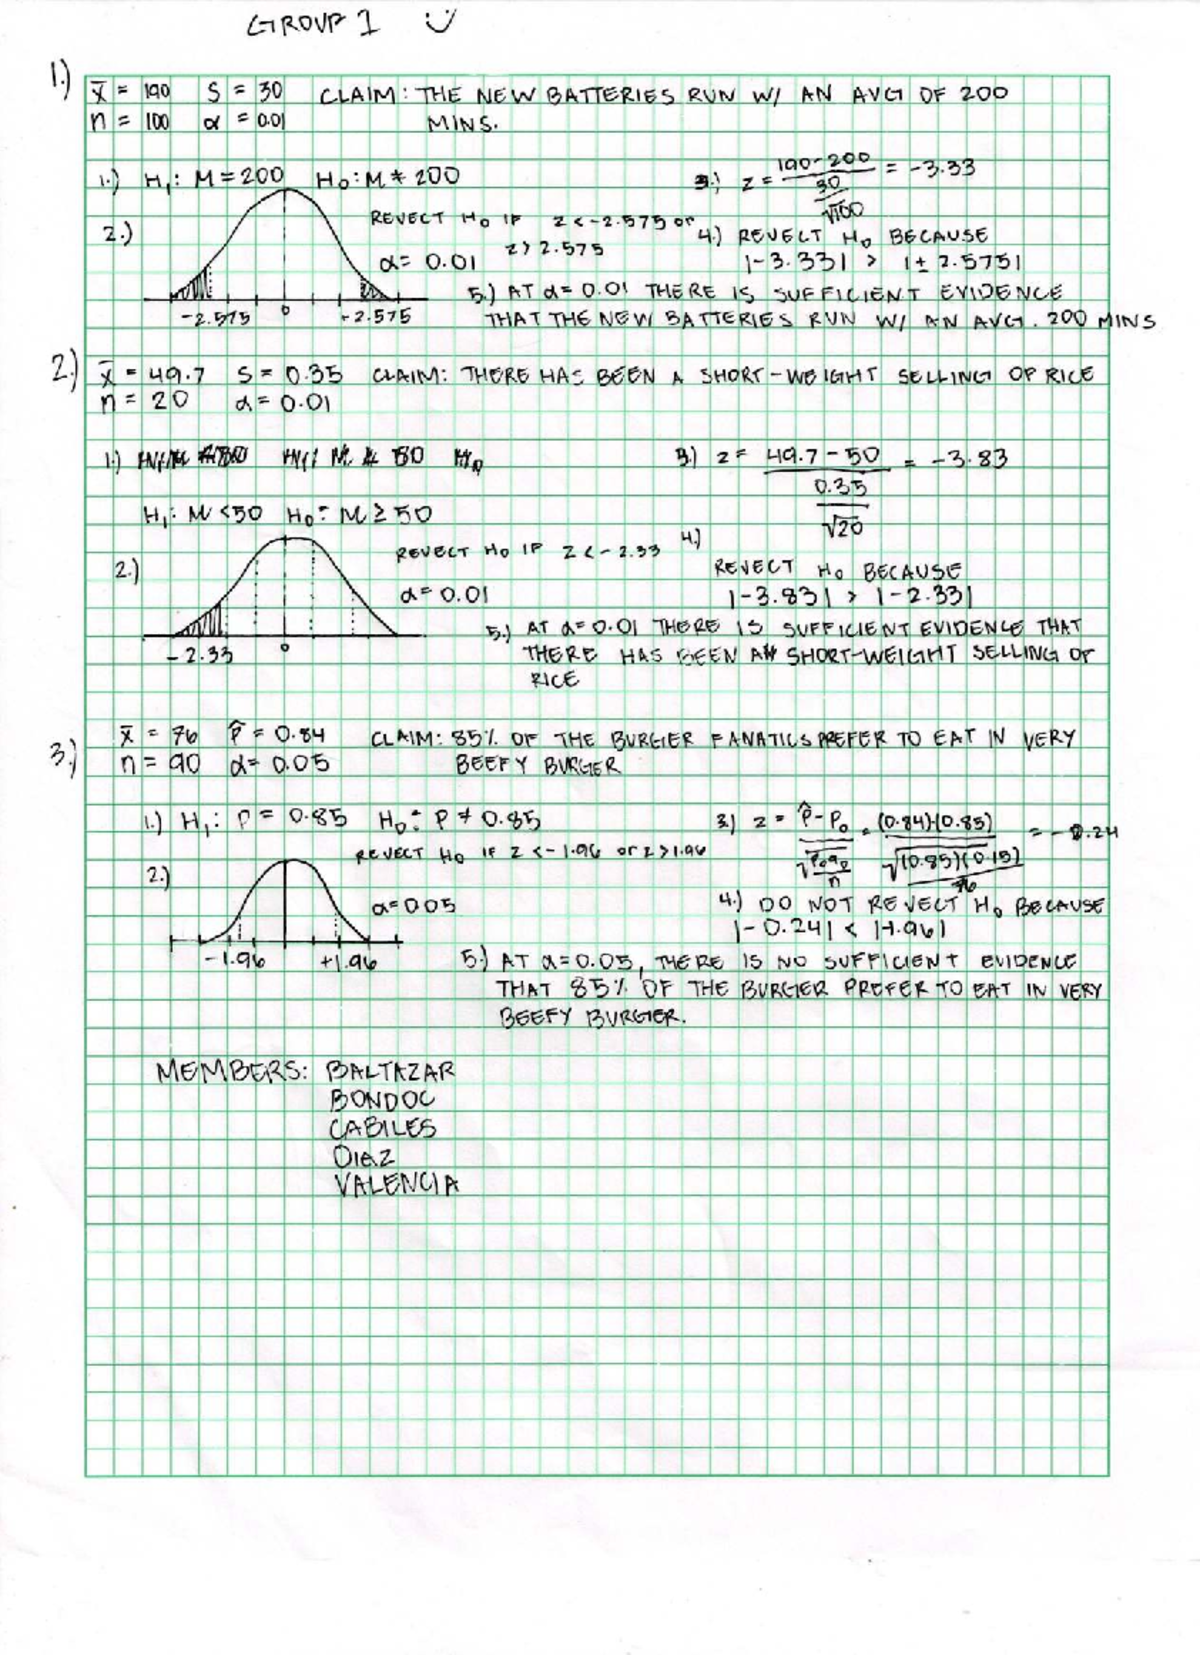 GROUP 1
1.)
x̄ = 190 S = 30 CLAIM: THE NEW BATTERIES RUN W/ AN AVG OF 200
n = 100 α = 0.01 MINS.
1.) H₁: M = 200 H₀: M ≠ 200
3.) z = 190-200 = -3.33
30
√100
2.)
REJECT H₀ IF z < -2.575 or
z > 2.575
α = 0.01
-2.575 0 +2.575
4.) REJECT H₀ BECAUSE
|-3.33| > |± 2.575|
5.) AT α = 0.01 THERE IS SUFFICIENT EVIDENCE
THAT THE NEW BATTERIES RUN W/ AN AVG. 200 MINS
2.)
x̄ = 49.7 S = 0.35 CLAIM: THERE HAS BEEN A SHORT-WEIGHT SELLING OF RICE
n = 20 α = 0.01
1.)
H₁: M < 50 H₀: M ≥ 50
3.) z = 49.7 - 50 = -3.83
0.35
√20
2.)
REJECT H₀ IF Z < -2.33
α = 0.01
-2.33 0
4.)
REJECT H₀ BECAUSE
|-3.83| > |-2.33|
5.) AT α = 0.01 THERE IS SUFFICIENT EVIDENCE THAT
THERE HAS BEEN A SHORT-WEIGHT SELLING OF
RICE
3.)
x̄ = 76 p̂ = 0.84 CLAIM: 85% OF THE BURGER FANATICS PREFER TO EAT IN VERY
n = 90 α = 0.05 BEEFY BURGER
1.) H₁: P = 0.85 H₀: P ≠ 0.85
3.) z = p̂ - P₀ = (0.84)-(0.85) = -0.24
√P₀q₀ √(0.85)(0.15)
n 76
2.)
REJECT H₀ IF Z < -1.96 or Z > 1.96
α = 0.05
-1.96 +1.96
4.) DO NOT REJECT H₀ BECAUSE
|-0.24| < |-1.96|
5.) AT α = 0.05, THERE IS NO SUFFICIENT EVIDENCE
THAT 85% OF THE BURGER PREFER TO EAT IN VERY
BEEFY BURGER.
MEMBERS: BALTAZAR
BONDOC
CABILES
DIAZ
VALENCIA